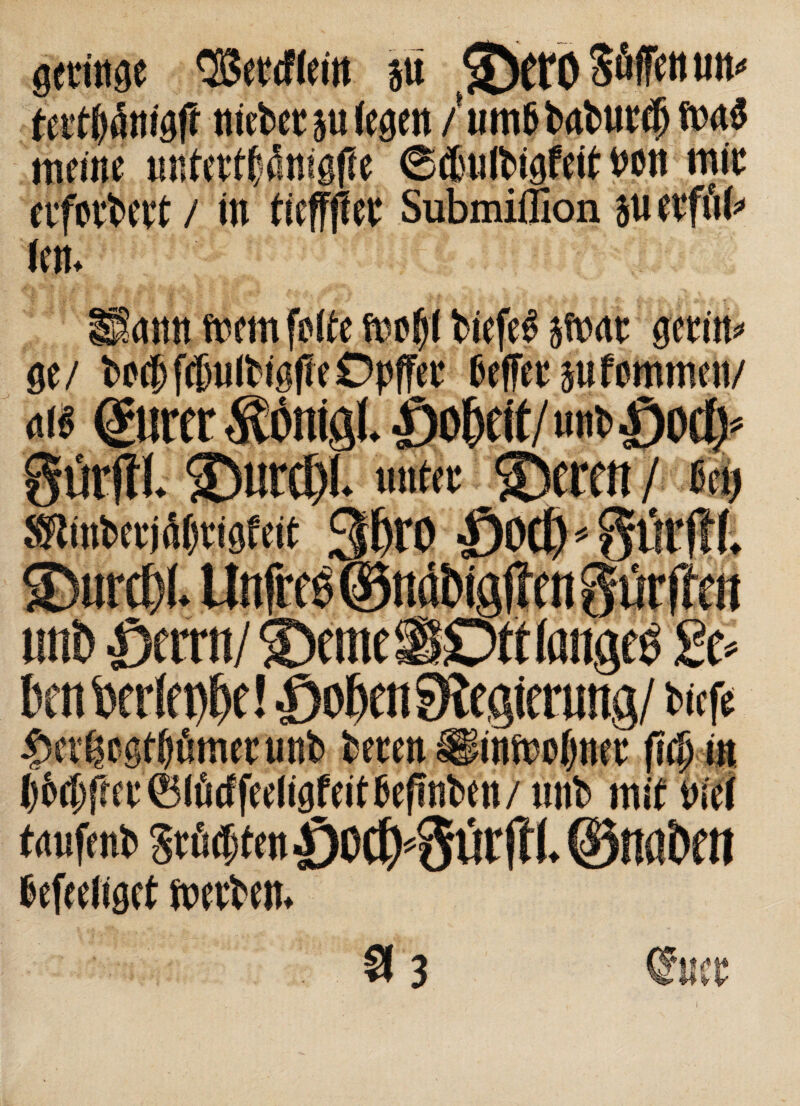 geringe Wercklein zu Dero Füſſen un⸗
terthänigſt nieder zu legen / umb dadurch was
meine unterthänigſte Schuldigkeit von mir
erfordert / in tieffſter Submiſſion zu erfül⸗
len.
Dann wem ſolte wohl dieſes zwar gerin⸗
ge / doch ſchuldigſte Opffer beſſer zukommen /
als Eurer Königl. Hoheit / und Hoch⸗
Fürſtl. Durchl. unter Deren / bey
Minderjährigkeit Ihro Hoch⸗Fürſtl.
Durchl. Unſres Gnädigſten Fürſten
und Herrn / Deme GOtt langes Le⸗
ben verleyhe! Hohen Regierung / dieſe
Hertzogthümer und deren Einwohner ſich in
höchſter Glückſeeligkeit befinden / und mit viel
tauſend Früchten Hoch⸗Fürſtl. Gnaden
beſeeliget werden.
A 3 Euer